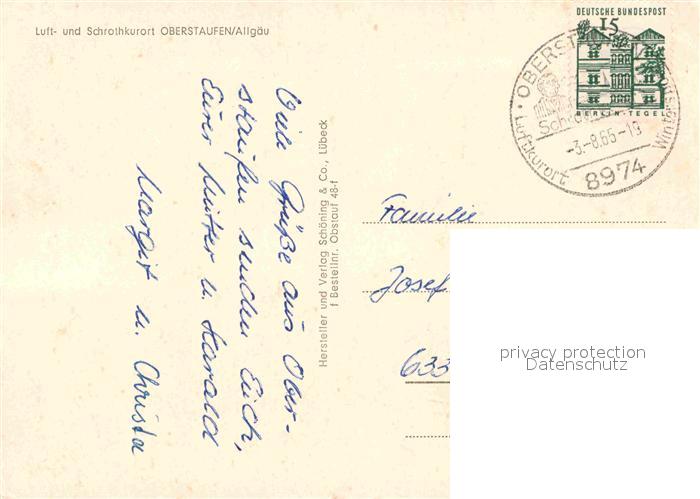 Luft- und Schrothkurort OBERSTAUFEN/Allgäu
Viele Grüße aus Ober-
staufen senden Euch,
Eure Mutter u. Harald
Margit u. Christa
Hersteller und Verlag Schöning & Co., Lübeck
f Bestellnr. Obstauf 48-f
DEUTSCHE BUNDESPOST
15
BERLIN-TEGEL
OBERST
-3.-8.65-19
Luftkurort
8974
Familie
Josef
633
privacy protection
Datenschutz